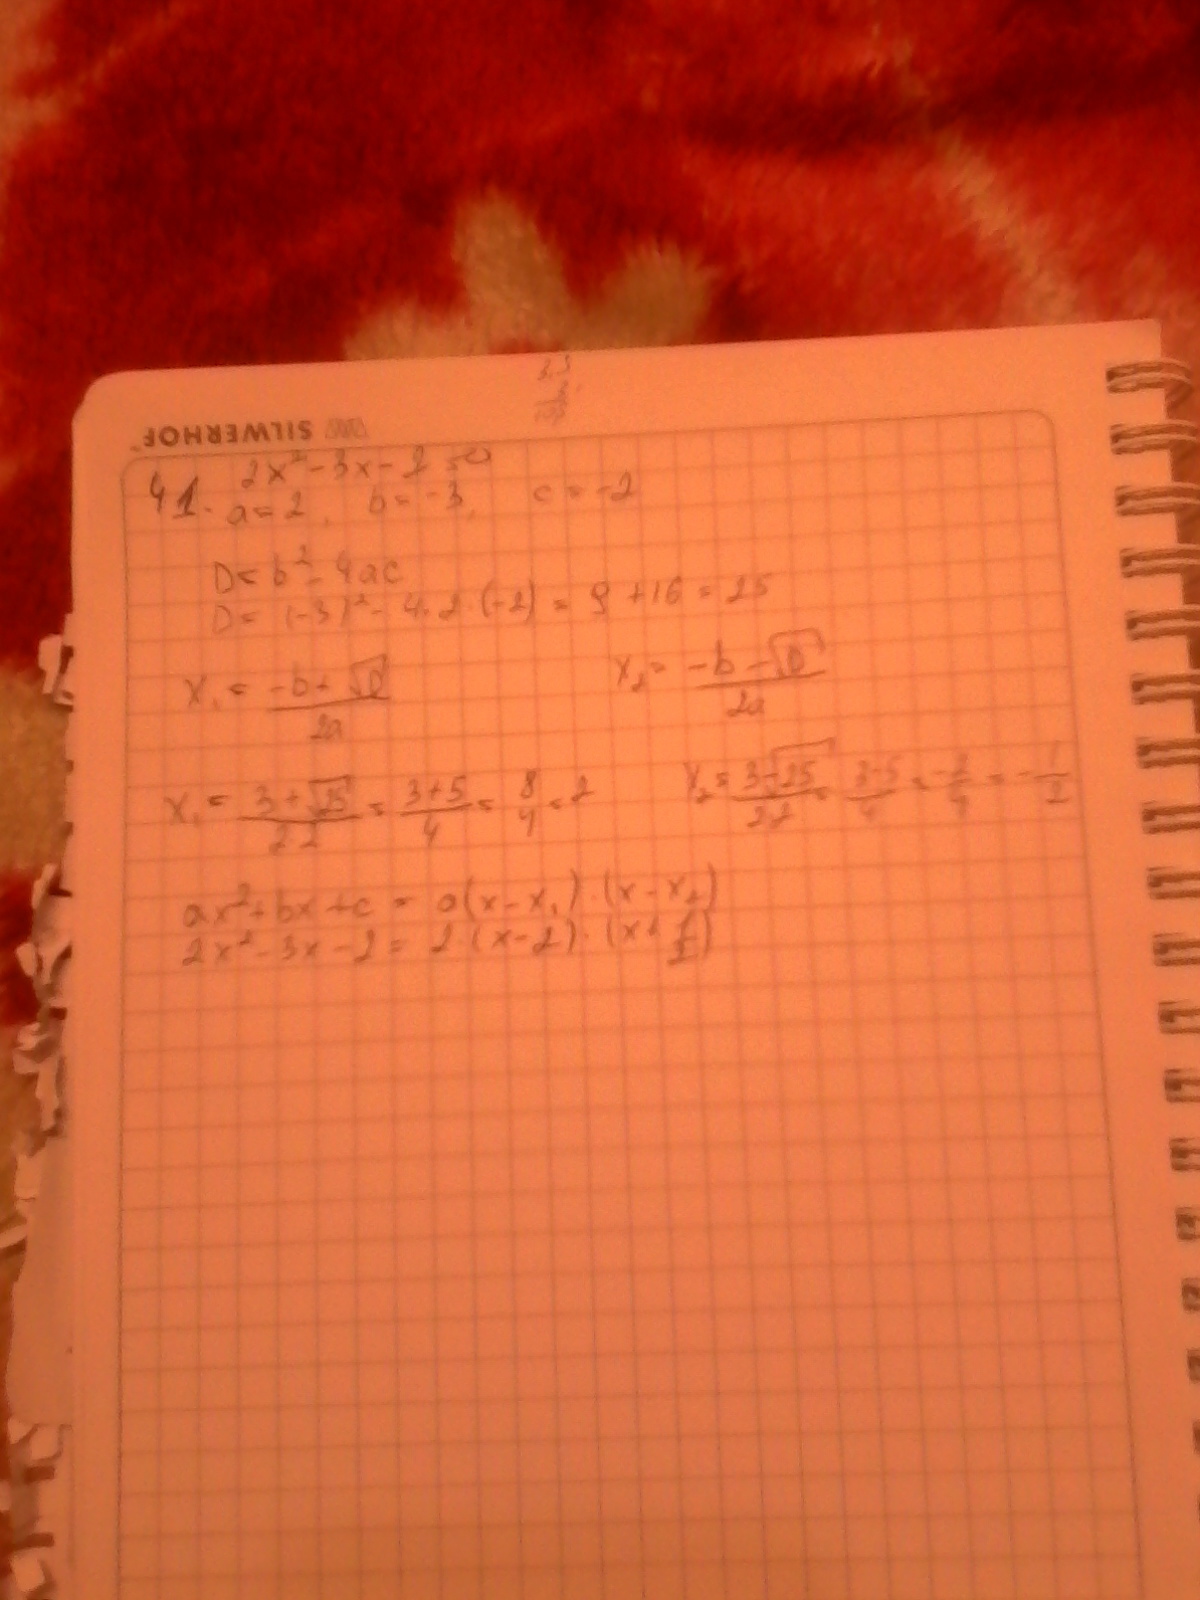 SILWERHOF
41. 2x² - 3x - 2 = 0
a = 2, b = -3, c = -2
D = b² - 4ac
D = (-3)² - 4·2·(-2) = 9 + 16 = 25
x₁ = (-b + √D)/2a x₂ = (-b - √D)/2a
x₁ = (3 + √25)/2·2 = (3+5)/4 = 8/4 = 2 x₂ = (3 - √25)/2·2 = (3-5)/4 = -2/4 = -1/2
ax² + bx + c = a(x - x₁)·(x - x₂)
2x² - 3x - 2 = 2·(x - 2)·(x + 1/2)